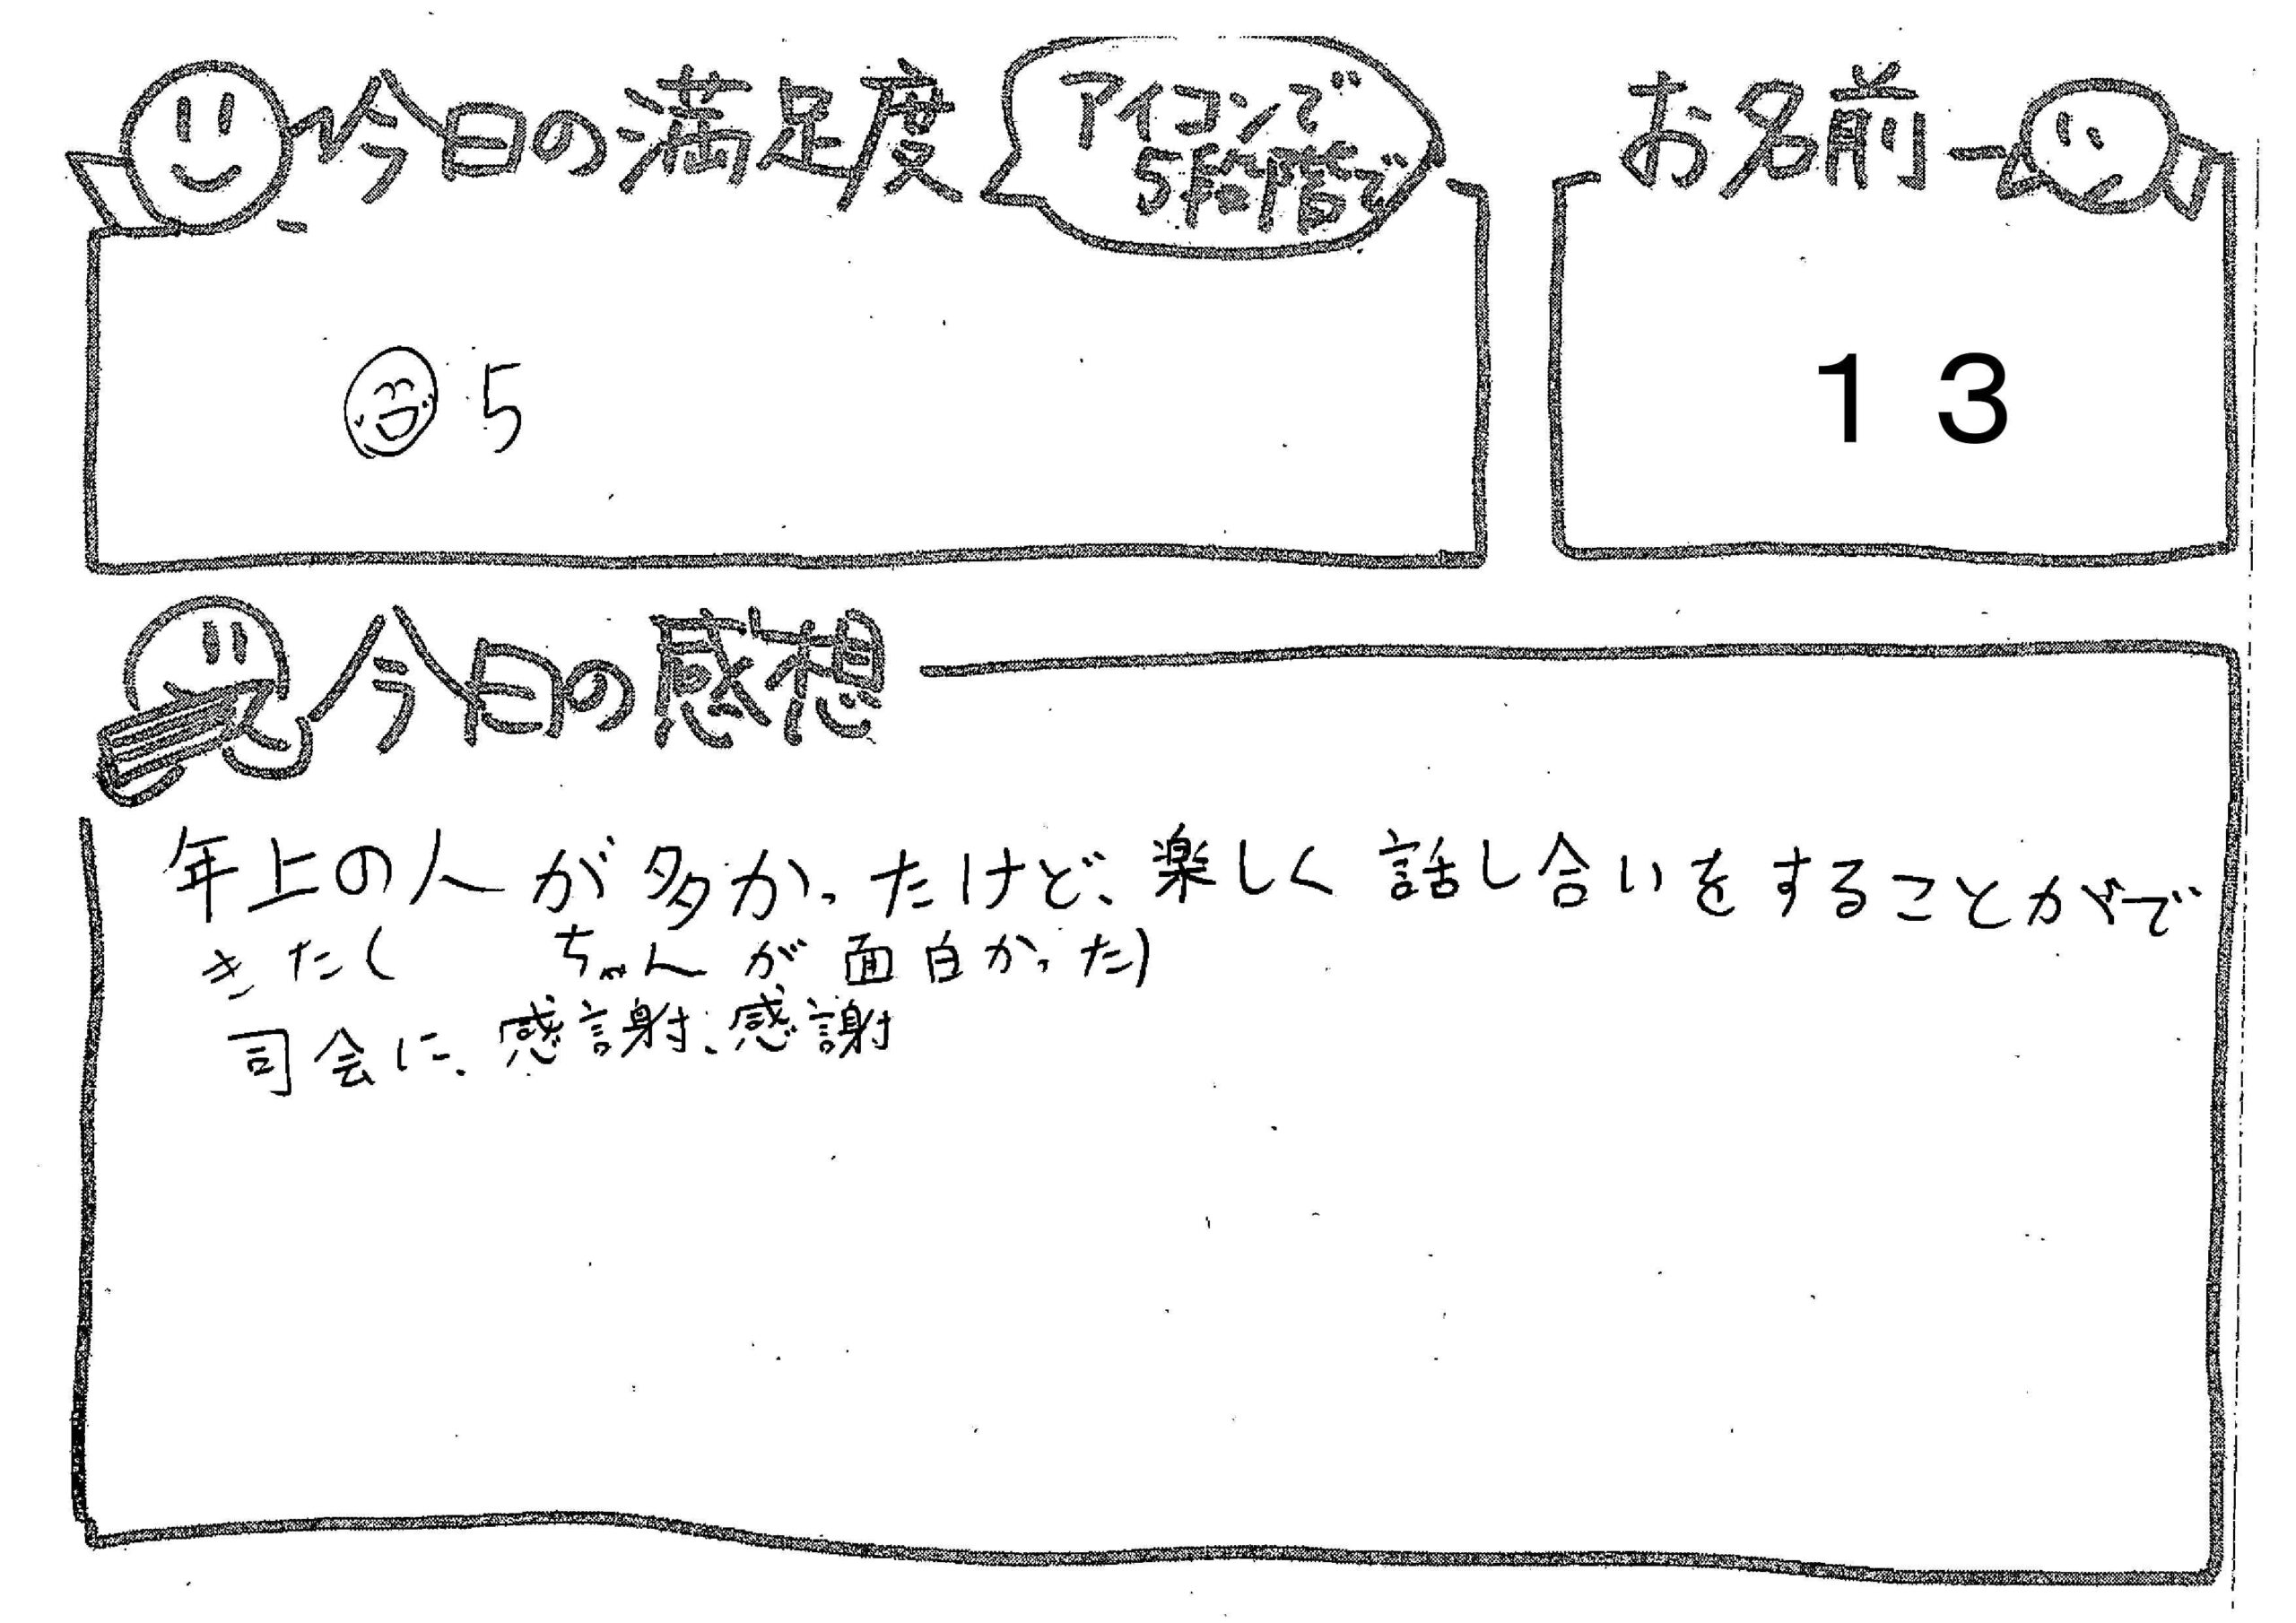 今日の満足度
アイコンで
5段階で
お名前
5
13
今日の感想
年上の人が多かったけど、楽しく話し合いをすることがで
きた( ちゃんが面白かった)
司会に、感謝、感謝